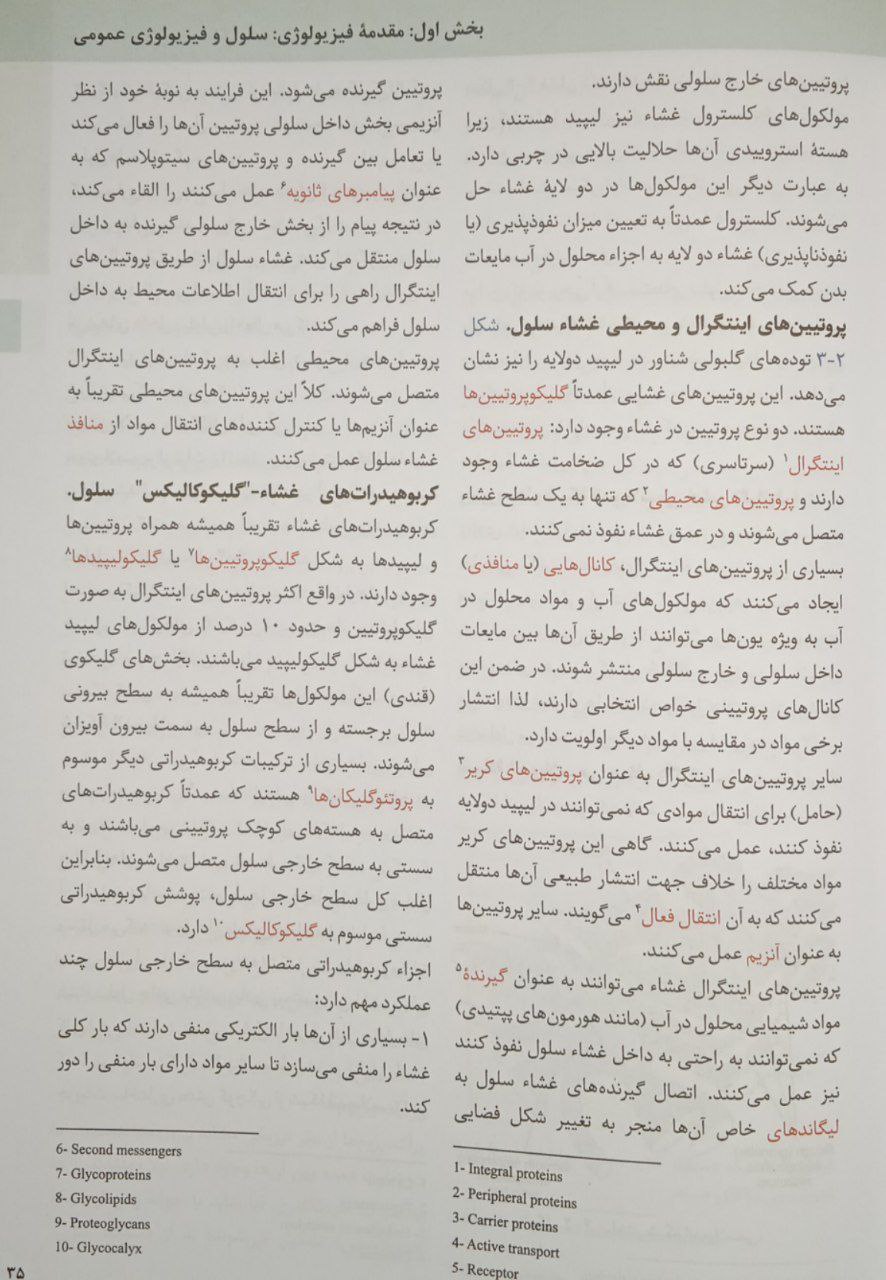 بخش اول: مقدمهٔ فیزیولوژی: سلول و فیزیولوژی عمومی
پروتیین‌های خارج سلولی نقش دارند.
مولکول‌های کلسترول غشاء نیز لیپید هستند، زیرا
هستهٔ استروییدی آن‌ها حلالیت بالایی در چربی دارد.
به عبارت دیگر این مولکول‌ها در دو لایهٔ غشاء حل
می‌شوند. کلسترول عمدتاً به تعیین میزان نفوذپذیری (یا
نفوذناپذیری) غشاء دو لایه به اجزاء محلول در آب مایعات
بدن کمک می‌کند.
پروتیین‌های اینتگرال و محیطی غشاء سلول. شکل
۳-۲ توده‌های گلبولی شناور در لیپید دولایه را نیز نشان
می‌دهد. این پروتیین‌های غشایی عمدتاً گلیکوپروتیین‌ها
هستند. دو نوع پروتیین در غشاء وجود دارد: پروتیین‌های
اینتگرال۱ (سرتاسری) که در کل ضخامت غشاء وجود
دارند و پروتیین‌های محیطی۲ که تنها به یک سطح غشاء
متصل می‌شوند و در عمق غشاء نفوذ نمی‌کنند.
بسیاری از پروتیین‌های اینتگرال، کانال‌هایی (یا منافذی)
ایجاد می‌کنند که مولکول‌های آب و مواد محلول در
آب به ویژه یون‌ها می‌توانند از طریق آن‌ها بین مایعات
داخل سلولی و خارج سلولی منتشر شوند. در ضمن این
کانال‌های پروتیینی خواص انتخابی دارند، لذا انتشار
برخی مواد در مقایسه با مواد دیگر اولویت دارد.
سایر پروتیین‌های اینتگرال به عنوان پروتیین‌های کریر۳
(حامل) برای انتقال موادی که نمی‌توانند در لیپید دولایه
نفوذ کنند، عمل می‌کنند. گاهی این پروتیین‌های کریر
مواد مختلف را خلاف جهت انتشار طبیعی آن‌ها منتقل
می‌کنند که به آن انتقال فعال۴ می‌گویند. سایر پروتیین‌ها
به عنوان آنزیم عمل می‌کنند.
پروتیین‌های اینتگرال غشاء می‌توانند به عنوان گیرندهٔ۵
مواد شیمیایی محلول در آب (مانند هورمون‌های پپتیدی)
که نمی‌توانند به راحتی به داخل غشاء سلول نفوذ کنند
نیز عمل می‌کنند. اتصال گیرنده‌های غشاء سلول به
لیگاندهای خاص آن‌ها منجر به تغییر شکل فضایی
1- Integral proteins
2- Peripheral proteins
3- Carrier proteins
4- Active transport
5- Receptor
پروتیین گیرنده می‌شود. این فرایند به نوبهٔ خود از نظر
آنزیمی بخش داخل سلولی پروتیین آن‌ها را فعال می‌کند
یا تعامل بین گیرنده و پروتیین‌های سیتوپلاسم که به
عنوان پیامبرهای ثانویه۶ عمل می‌کنند را القاء می‌کند،
در نتیجه پیام را از بخش خارج سلولی گیرنده به داخل
سلول منتقل می‌کند. غشاء سلول از طریق پروتیین‌های
اینتگرال راهی را برای انتقال اطلاعات محیط به داخل
سلول فراهم می‌کند.
پروتیین‌های محیطی اغلب به پروتیین‌های اینتگرال
متصل می‌شوند. کلاً این پروتیین‌های محیطی تقریباً به
عنوان آنزیم‌ها یا کنترل کننده‌های انتقال مواد از منافذ
غشاء سلول عمل می‌کنند.
کربوهیدرات‌های غشاء-"گلیکوکالیکس" سلول.
کربوهیدرات‌های غشاء تقریباً همیشه همراه پروتیین‌ها
و لیپیدها به شکل گلیکوپروتیین‌ها۷ یا گلیکولیپیدها۸
وجود دارند. در واقع اکثر پروتیین‌های اینتگرال به صورت
گلیکوپروتیین و حدود ۱۰ درصد از مولکول‌های لیپید
غشاء به شکل گلیکولیپید می‌باشند. بخش‌های گلیکوی
(قندی) این مولکول‌ها تقریباً همیشه به سطح بیرونی
سلول برجسته و از سطح سلول به سمت بیرون آویزان
می‌شوند. بسیاری از ترکیبات کربوهیدراتی دیگر موسوم
به پروتئوگلیکان‌ها۹ هستند که عمدتاً کربوهیدرات‌های
متصل به هسته‌های کوچک پروتیینی می‌باشند و به
سستی به سطح خارجی سلول متصل می‌شوند. بنابراین
اغلب کل سطح خارجی سلول، پوشش کربوهیدراتی
سستی موسوم به گلیکوکالیکس۱۰ دارد.
اجزاء کربوهیدراتی متصل به سطح خارجی سلول چند
عملکرد مهم دارد:
۱- بسیاری از آن‌ها بار الکتریکی منفی دارند که بار کلی
غشاء را منفی می‌سازد تا سایر مواد دارای بار منفی را دور
کند.
6- Second messengers
7- Glycoproteins
8- Glycolipids
9- Proteoglycans
10- Glycocalyx
۳۵